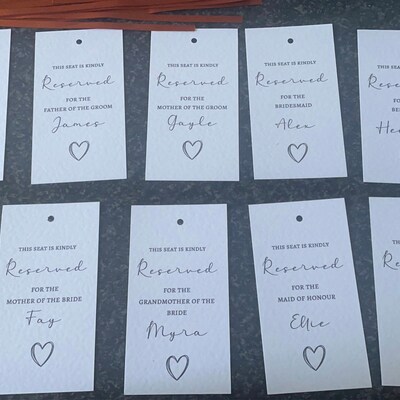 THIS SEAT IS KINDLY
Reserved
FOR THE
FATHER OF THE GROOM
James
THIS SEAT IS KINDLY
Reserved
FOR THE
MOTHER OF THE GROOM
Gayle
THIS SEAT IS KINDLY
Reserved
FOR THE
BRIDESMAID
Alex
THIS SEAT IS KINDLY
Reserved
FOR THE
MOTHER OF THE BRIDE
Fay
THIS SEAT IS KINDLY
Reserved
FOR THE
GRANDMOTHER OF THE
BRIDE
Myra
THIS SEAT IS KINDLY
Reserved
FOR THE
MAID OF HONOUR
Ellie